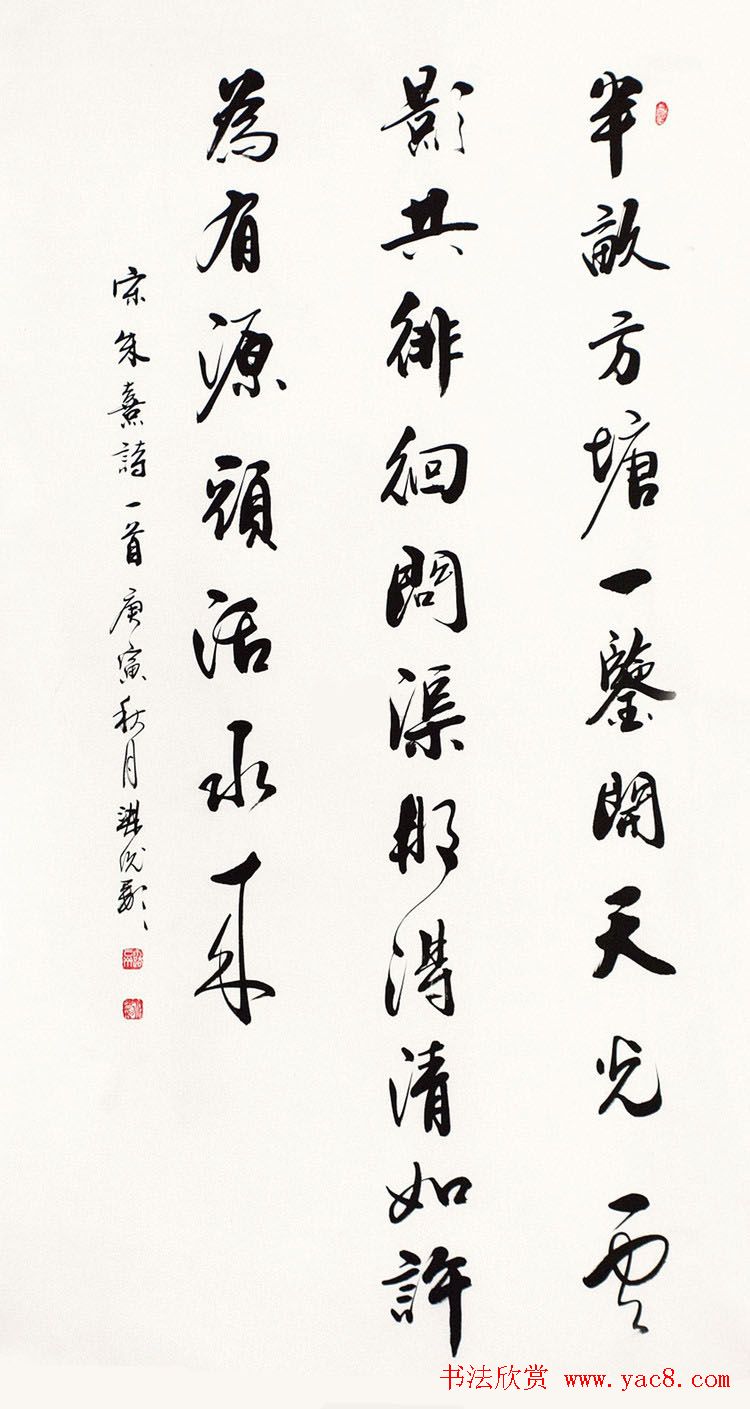 半畝方塘一鑒開天光雲
影共徘徊問渠那得清如許
為有源頭活水來
宋朱熹詩一首庚寅秋月
书法欣赏 www.yac8.com